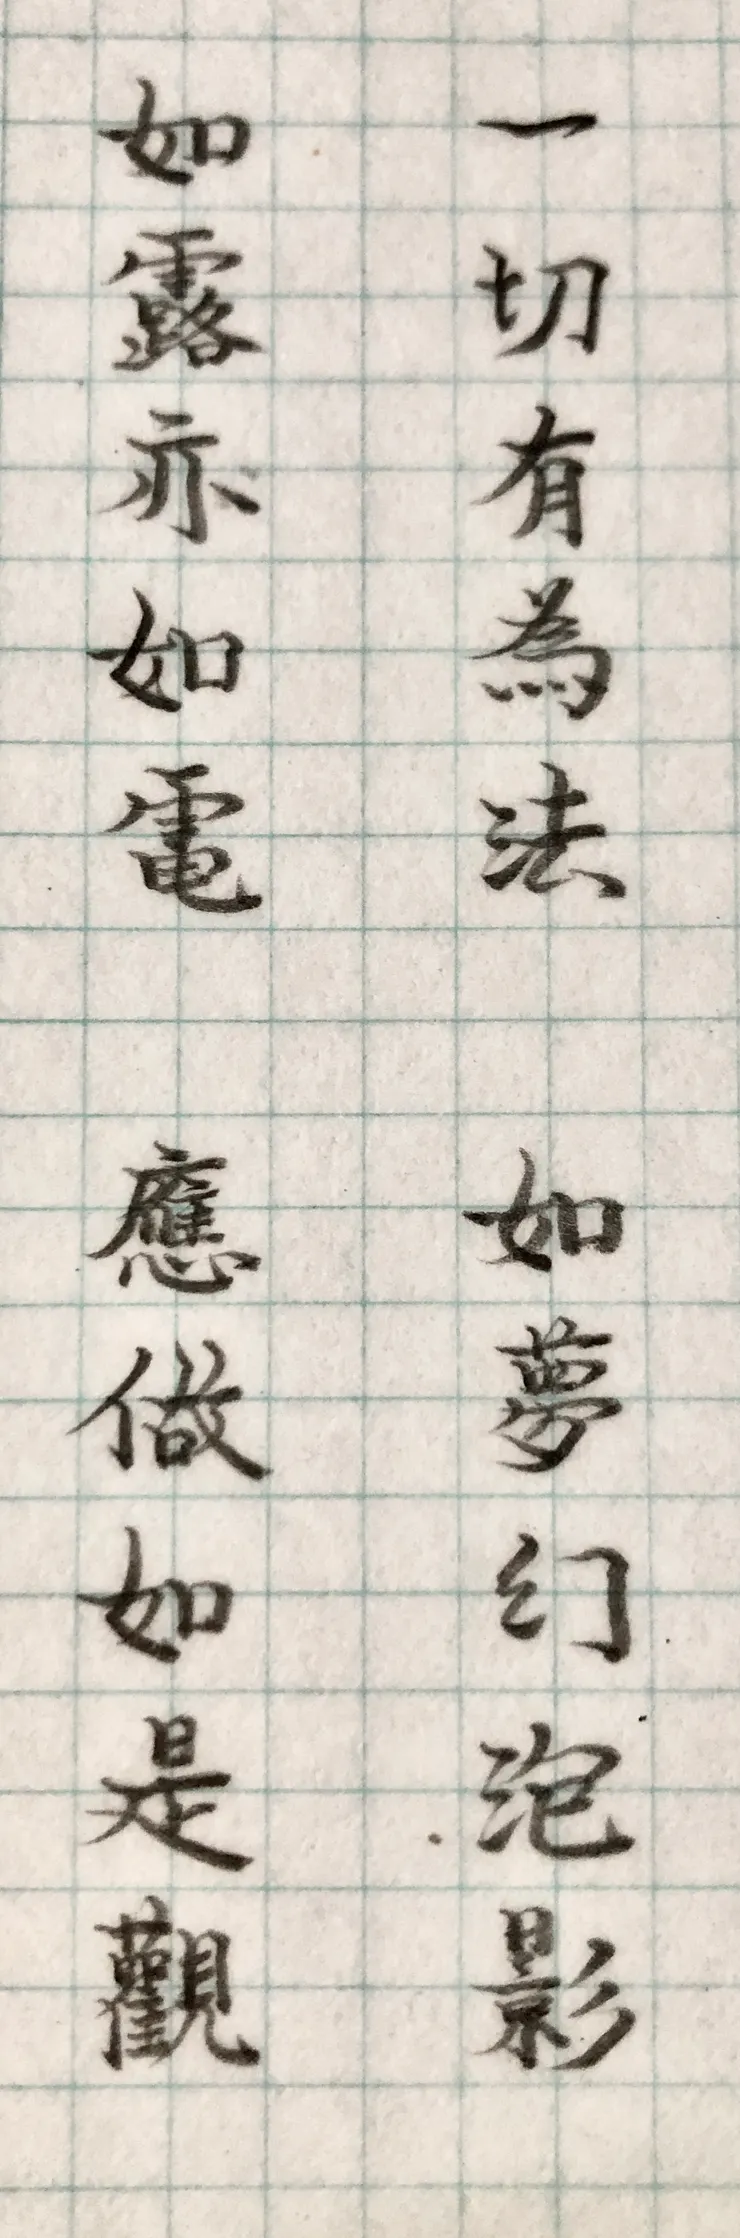 一切有為法 如夢幻泡影
如露亦如電 應做如是觀